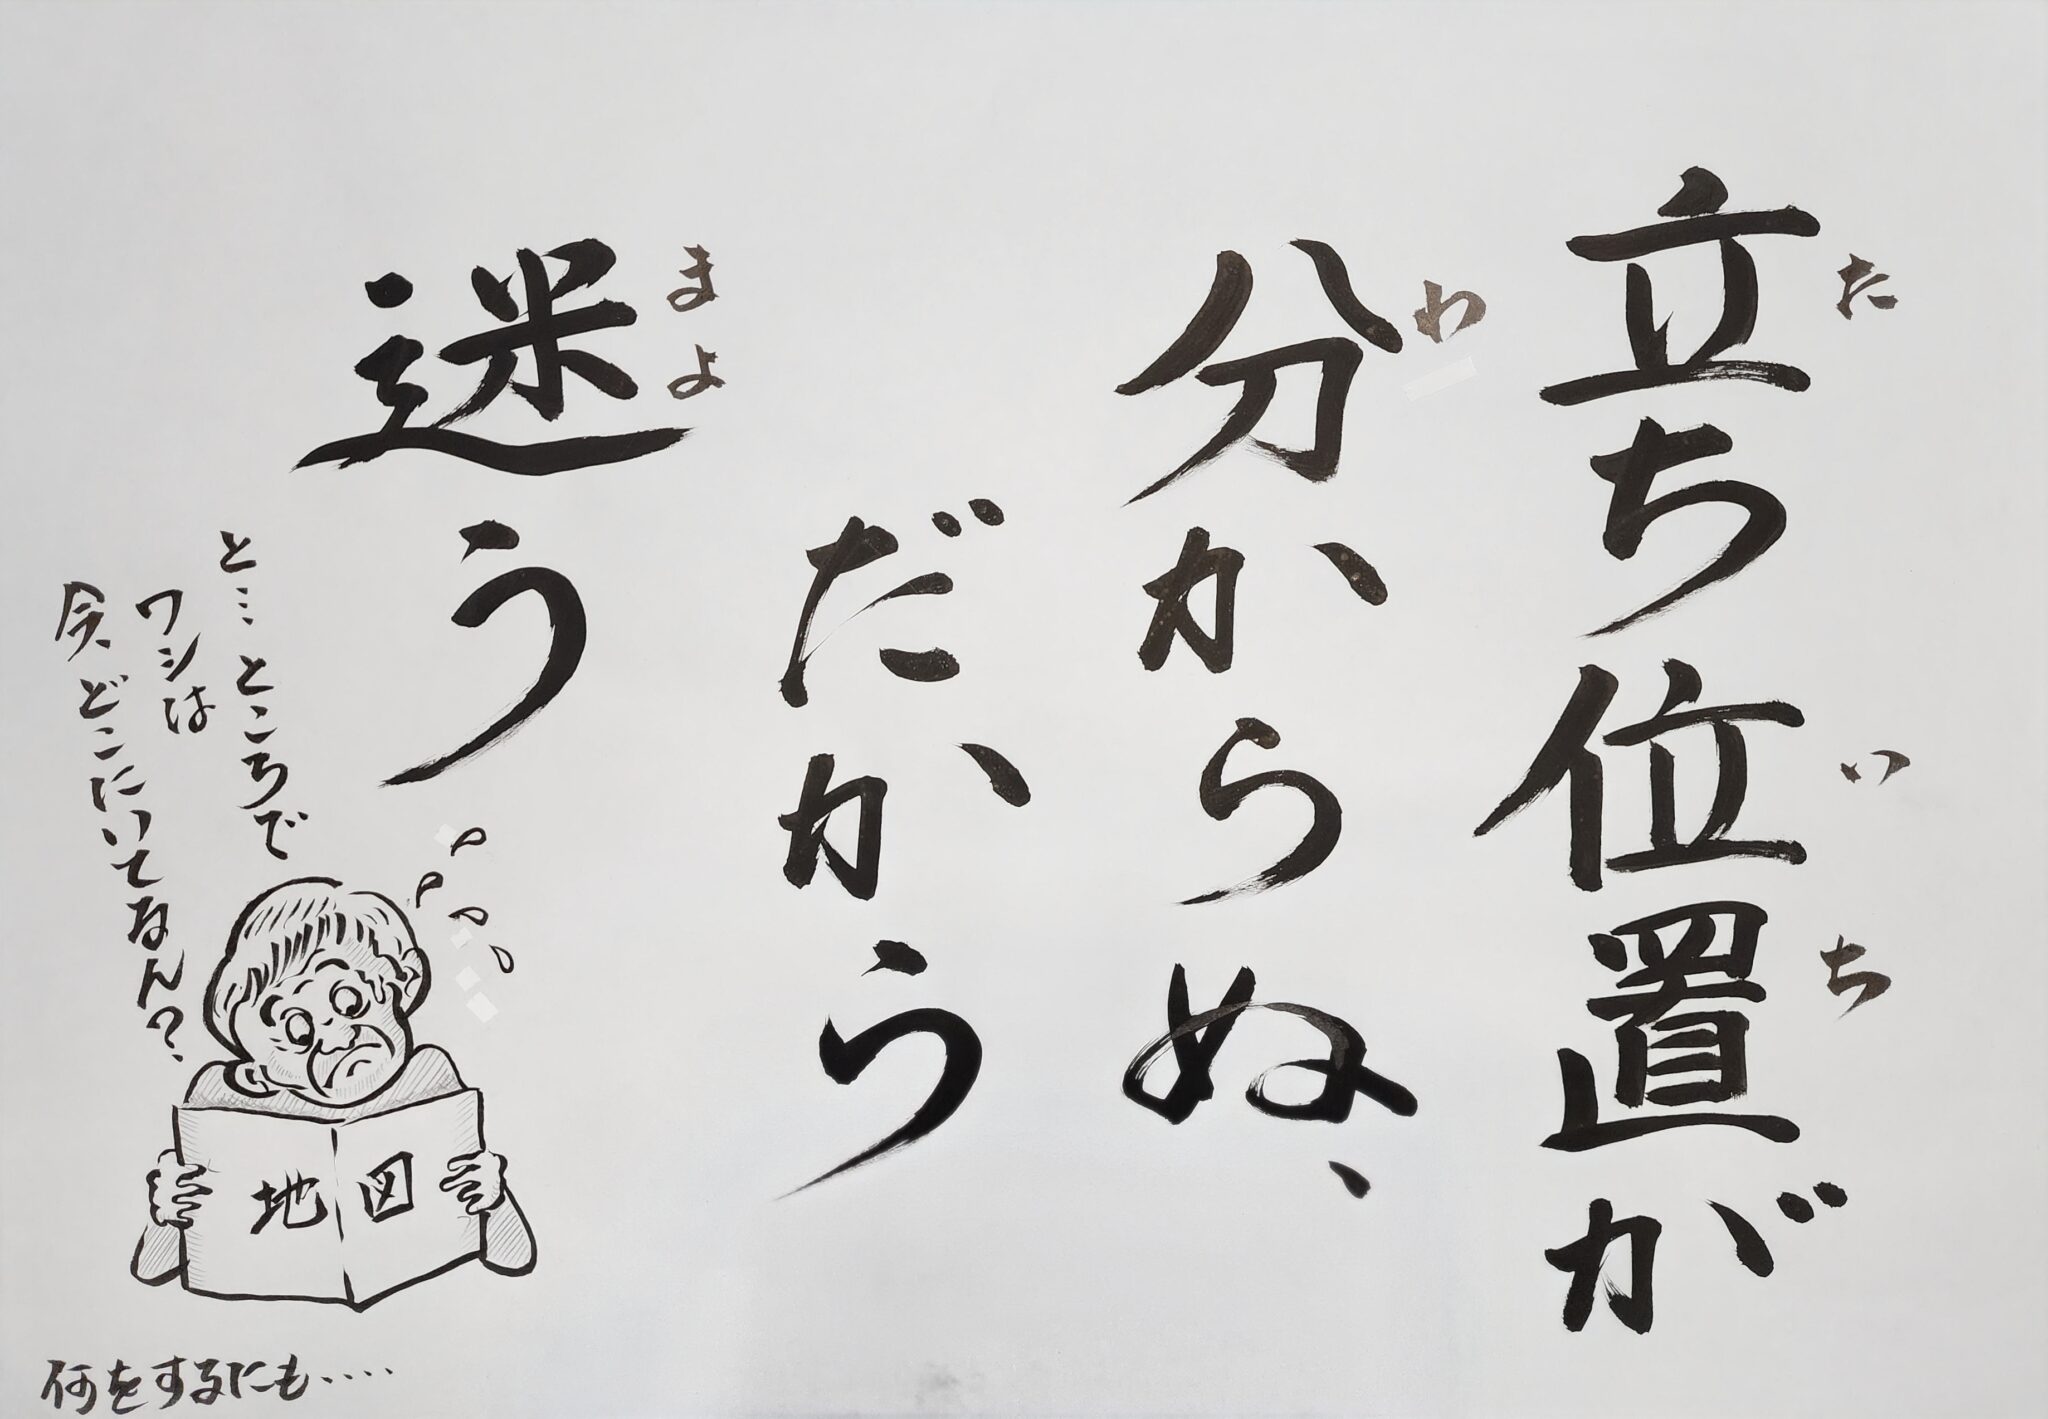 立ち位置が
た
いち
分からぬ、
わ
だから
迷う
まよ
と…ところで
ワシは
今、どこにいてなん？
地図
何をするにも‥‥